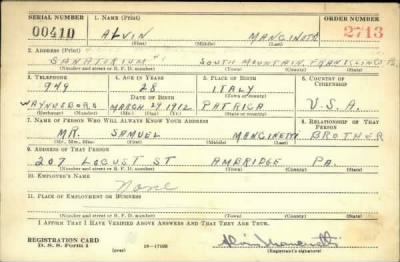 SERIAL NUMBER 1. NAME (Print) ORDER NUMBER
00410 ALVIN MANCINETTI 2713
(First) (Middle) (Last)
2. ADDRESS (Print)
SANATORIUM #1 SOUTH MOUNTAIN, FRANKLIN PA.
(Number and street or R. F. D. number) (Town) (County) (State)
3. TELEPHONE 4. AGE IN YEARS 5. PLACE OF BIRTH 6. COUNTRY OF CITIZENSHIP
949 28 ITALY
DATE OF BIRTH (Town or county)
WAYNESBORO MARCH 27, 1912 PATRICA U.S.A.
(Exchange) (Number) (Mo.) (Day) (Yr.) (State or country)
7. NAME OF PERSON WHO WILL ALWAYS KNOW YOUR ADDRESS 8. RELATIONSHIP OF THAT PERSON
MR. SAMUEL MANCINETTI BROTHER
(Mr., Mrs., Miss) (First) (Middle) (Last)
9. ADDRESS OF THAT PERSON
207 LOCUST ST AMBRIDGE PA.
(Number and street or R. F. D. number) (Town) (County) (State)
10. EMPLOYER'S NAME
None
11. PLACE OF EMPLOYMENT OR BUSINESS
(Number and street or R. F. D. number) (Town) (County) (State)
I AFFIRM THAT I HAVE VERIFIED ABOVE ANSWERS AND THAT THEY ARE TRUE.
REGISTRATION CARD
D. S. S. Form 1 (over) 16—17105 Alvin Mancinetti
(Registrant's signature)